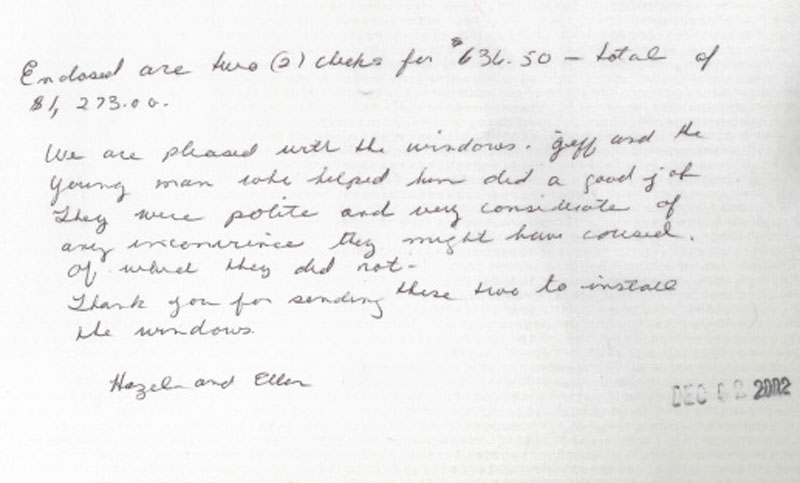 Enclosed are two (2) checks for $636.50 — total of
$1,273.00.
We are pleased with the windows. Jeff and the
young man who helped him did a good job
They were polite and very considerate of
any inconvience they might have caused.
Of which they did not-
Thank you for sending these two to install
the windows.
Hazel and Ellen
DEC 02 2002